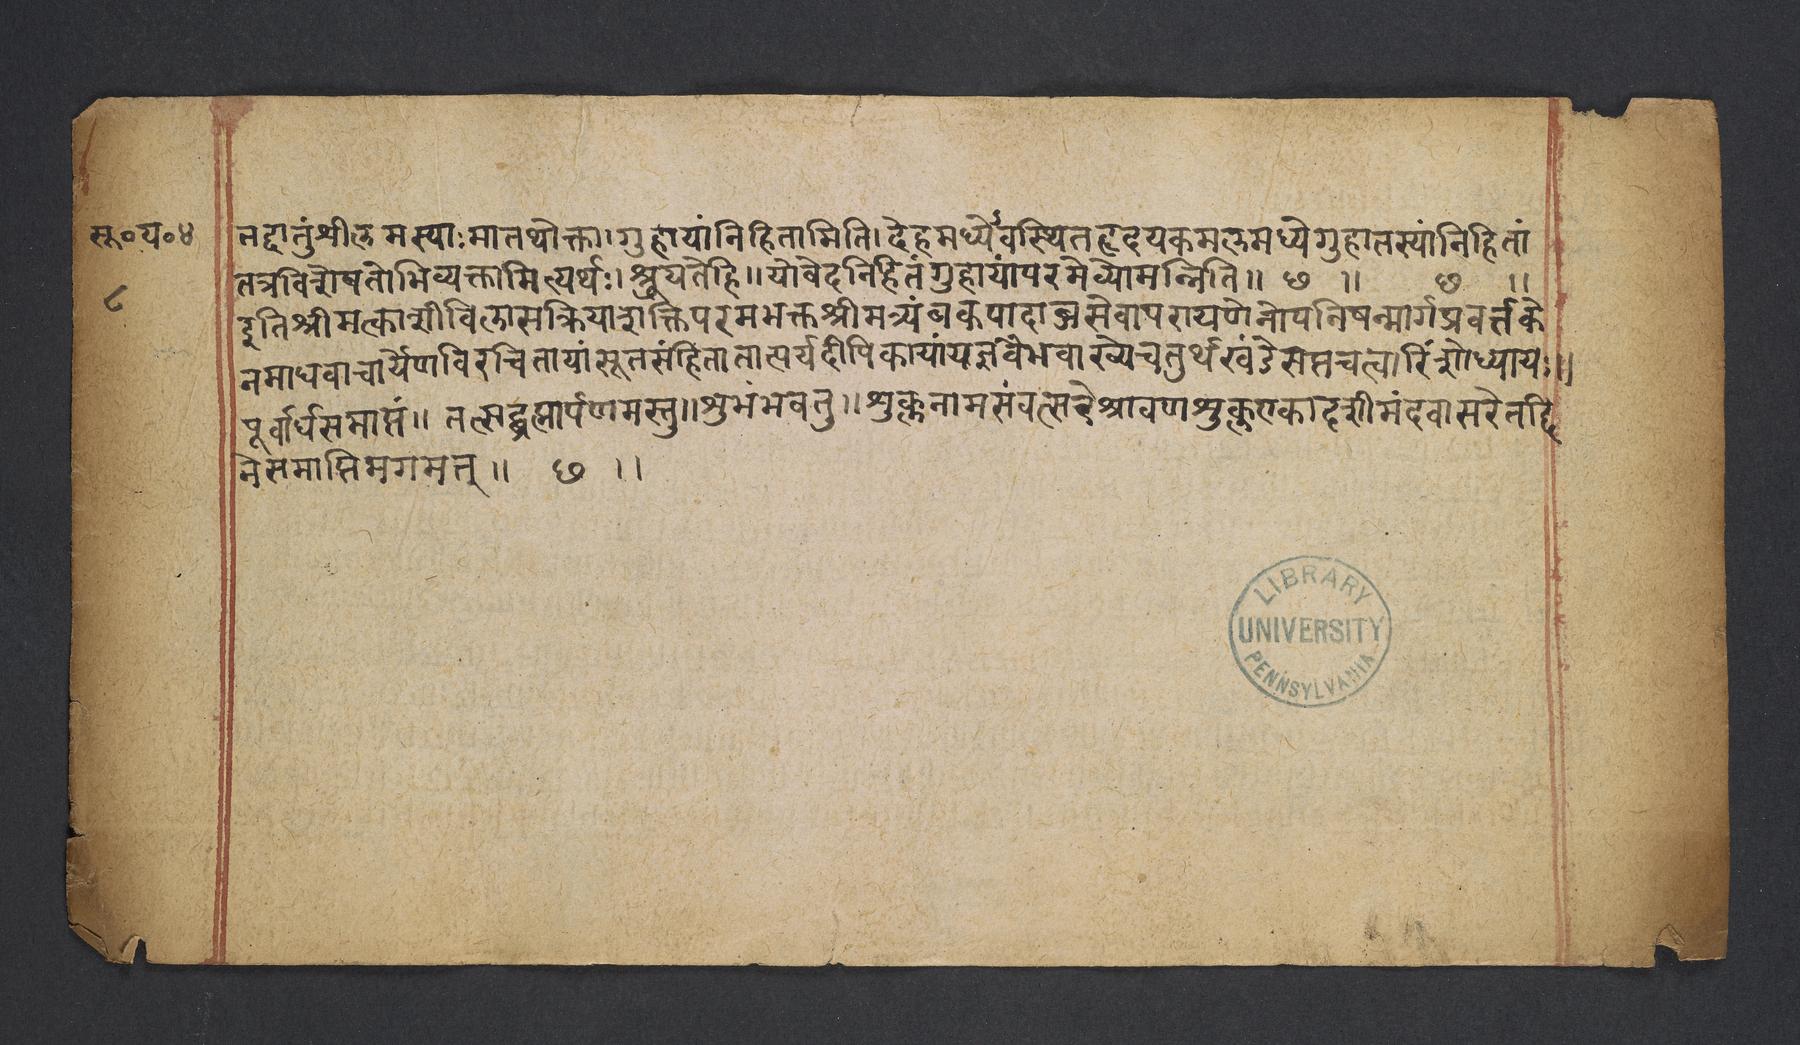 सू॰य॰४
८
तद्दातुंश्रीलमस्याःमातथोक्ता।गुहायांनिहितामिति।देहमध्येऽवस्थितहृदयकमलमध्येगुहातस्यांनिहितां
तत्रविशेषतोभिव्यक्तामित्यर्थः।श्रूयतेहि॥योवेदनिहितंगुहायांपरमेव्योमन्निति॥ छ ॥ छ ॥
इतिश्रीमत्काशीविलासक्रियाशक्तिपरमभक्तश्रीमत्र्यंबकपादाब्जसेवापरायणेनोपनिषन्मार्गप्रवर्त्तके
नमाधवाचार्येणविरचितायांसूतसंहितातात्पर्यदीपिकायांयज्ञवैभवाख्येचतुर्थखंडेसप्तचत्वारिंशोध्यायः॥
पूर्वार्धसमाप्तं॥ तत्सद्ब्रह्मार्पणमस्तु॥शुभंभवतु॥शुक्लनामसंवत्सरेश्रावणशुक्लएकादशीमंदवासरेतद्दि
नेसमाप्तिमगमत् ॥ छ ॥
LIBRARY
UNIVERSITY
PENNSYLVANIA